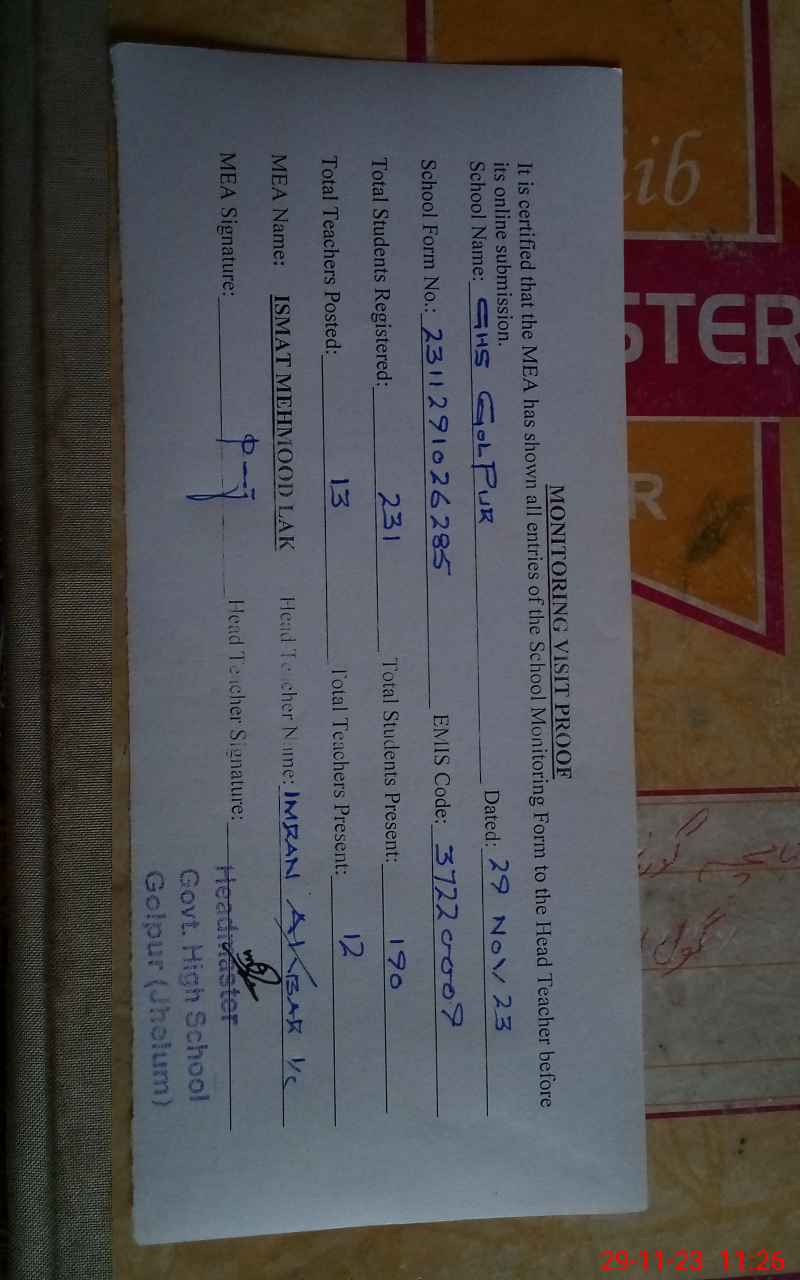 MONITORING VISIT PROOF
It is certified that the MEA has shown all entries of the School Monitoring Form to the Head Teacher before
its online submission.
School Name: GHS GOLPUR Dated: 29 NOV 23
School Form No.: 2311291026285 EMIS Code: 37220009
Total Students Registered: 231 Total Students Present: 190
Total Teachers Posted: 13 Total Teachers Present: 12
MEA Name: ISMAT MEHMOOD LAK Head Teacher Name: IMRAN AKBAR I/C
MEA Signature: Head Teacher Signature:
Headmaster
Govt. High School
Golpur (Jhelum)
ib
STER
R
29-11-23 11:26